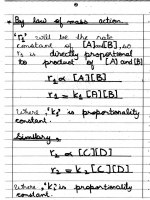 * By law of mass action.
'r₁' will be the rate
constant of [A] and [B], so
r₁ is directly proportional
to product of [A] and [B]
r₁ ∝ [A][B]
r₁ = k₁ [A][B]
Where, 'k₁' is proportionality
constant.
Similary,
r₂ ∝ [C][D]
r₂ = k₂ [C][D]
Where, 'k₂' is proportionality
constant.